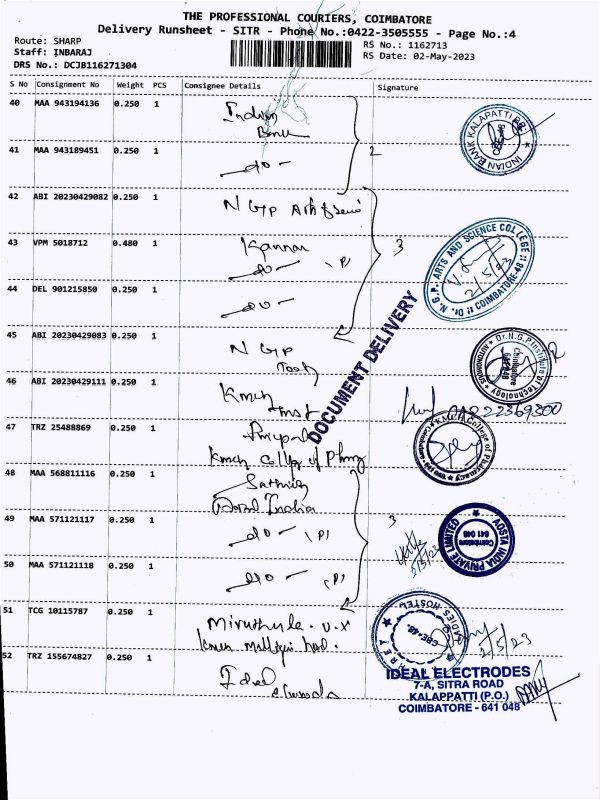 THE PROFESSIONAL COURIERS, COIMBATORE
Delivery Runsheet - SITR - Phone No.:0422-3505555 - Page No.:4
Route: SHARP
RS No.: 1162713
Staff: INBARAJ
RS Date: 02-May-2023
DRS No.: DCJB116271304
S No Consignment No Weight PCS Consignee Details Signature
40 MAA 943194136 0.250 1 Indian Bank
INDIAN BANK KALAPATTI BR.
41 MAA 943189451 0.250 1 - do -
2
42 ABI 20230429082 0.250 1 N G P Art & Scnic
43 VPM 5018712 0.480 1 Kannan
- do - (P)
3
Dr. N.G.P. ARTS AND SCIENCE COLLEGE
COIMBATORE-48
2/5/23
44 DEL 901215850 0.250 1 - do -
DOCUMENT DELIVERY
45 ABI 20230429083 0.250 1 N G P Tech
Dr.N.G.P.Institute of Technology
Coimbatore 641 048
46 ABI 20230429111 0.250 1 Kmch Inst
47 TRZ 25488869 0.250 1
Kmch College of Pharmy
K.M.C.H. College of Pharmacy
48 MAA 568811116 0.250 1 Sathiya
India
49 MAA 571121117 0.250 1 - do - (P)
3
AOSTA INDIA PRIVATE LIMITED
Coimbatore 641 048
2/5/23
50 MAA 571121118 0.250 1 - do - (P)
51 TCG 10115787 0.250 1 Miruthula. V.X
Kmch Malligai hos.
LADIES HOSTEL
CBE-48.
2/5/23
52 TRZ 155674827 0.250 1 Ideal
IDEAL ELECTRODES
7-A, SITRA ROAD
KALAPPATTI (P.O.)
COIMBATORE - 641 048